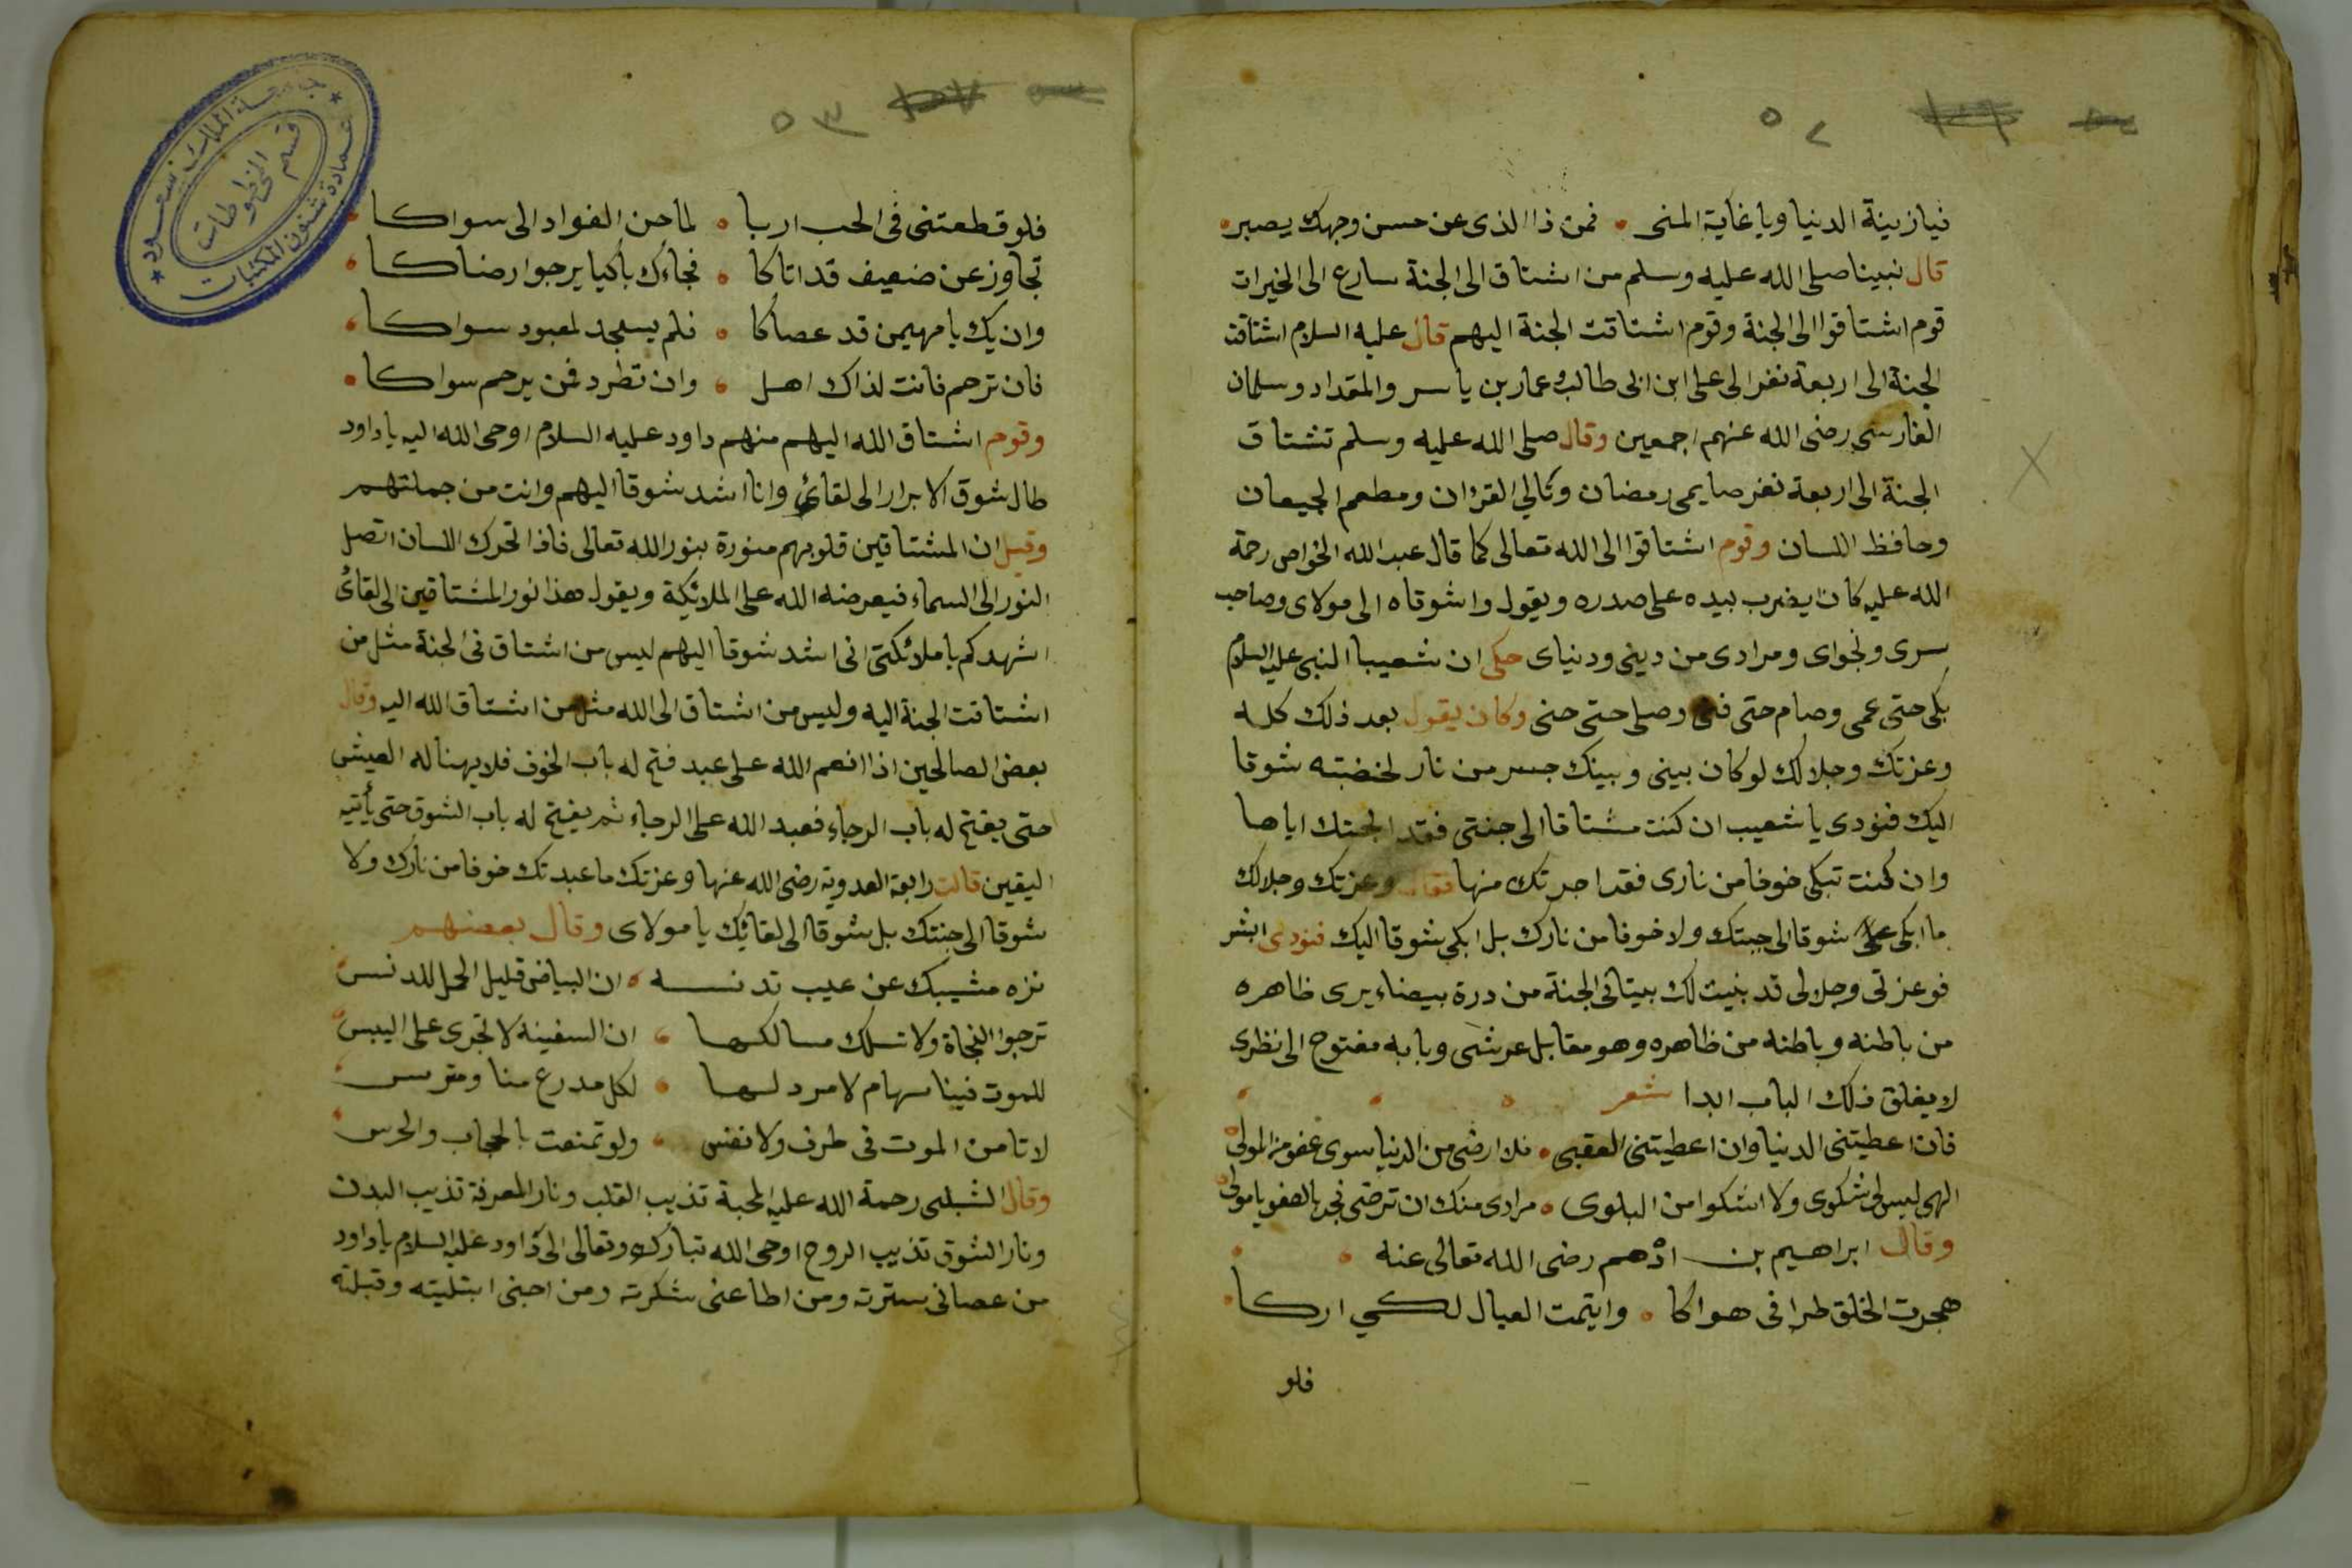 ٥٢
فيازينة الدنيا وياغاية المنى • فمن ذا الذى عن حسن وجهك يصبر
قال نبينا صلى الله عليه وسلم من اشتاق الى الجنة سارع الى الخيرات
قوم اشتاقوا الى الجنة وقوم اشتاقت الجنة اليهم قال عليه السلام اشتاقت
الجنة الى اربعة نفر الى على ابن ابى طالب وعمار بن ياسر والمقداد وسلمان
الفارسى رضى الله عنهم اجمعين وقال صلى الله عليه وسلم تشتاق
الجنة الى اربعة نفر صايمى رمضان وتالي القرءان ومطعم الجيعان
وحافظ اللسان وقوم اشتاقوا الى الله تعالى كما قال عبد الله الخواص رحمة
الله عليه كان يضرب بيده على صدره ويقول واشوقاه الى مولاى وصاحب
سرى ونجواى ومرادى من دينى ودنياى حكى ان شعيبا النبى عليه السلام
بكى حتى عمى وصام حتى فنى وصلى حتى حنى وكان يقول بعد ذلك كله
وعزتك وجلالك لو كان بينى وبينك جسر من نار لخضته شوقا
اليك فنودى يا شعيب ان كنت مشتاقا الى جنتى فقد ابحتك اياها
وان كنت تبكى خوفا من نارى فقد اجرتك منها فقال وعزتك وجلالك
ما ابكى شوقا الى جنتك ولا خوفا من نارك بل ابكى شوقا اليك فنودى ابشر
فوعزتى وجلالى قد بنيت لك بيتا فى الجنة من درة بيضاء يرى ظاهره
من باطنه وباطنه من ظاهره وهو مقابل عرشى وبابه مفتوح الى نظرى
لا يغلق ذلك الباب ابدا شعر
فان اعطيتنى الدنيا وان اعطيتنى العقبى • فلا ارضى من الدنيا سوى عفو من المولى
الهى ليس لى شكوى ولا اشكوا من البلوى • مرادى منك ان ترضى فجد بالعفو يا مولى
وقال ابراهيم بن ادهم رضى الله تعالى عنه
هجرت الخلق طرا فى هواكا • وايتمت العيال لكى اركا
فلو
٥٣
جامعة الملك سعود
قسم المخطوطات
عمادة شئون المكتبات
فلو قطعتنى فى الحب اربا • لما حن الفواد الى سواكا
تجاوز عن ضعيف قد اتاكا • فجاءك باكيا يرجوا رضاكا
وان يك يا مهيمن قد عصاكا • فلم يسجد لمعبود سواكا
فان ترحم فانت لذاك اهل • وان تطرد فمن يرحم سواكا
وقوم اشتاق الله اليهم منهم داود عليه السلام اوحى الله اليه يا داود
طال شوق الابرار الى لقائي وانا اشد شوقا اليهم وانت من جملتهم
وقيل ان المشتاقين قلوبهم منورة بنور الله تعالى فاذا تحرك اللسان اتصل
النور الى السماء فيعرضه الله على الملائكة ويقول هذا نور المشتاقين الى لقائى
اشهدكم يا ملائكتى انى اشد شوقا اليهم ليس من اشتاق فى الجنة مثل من
اشتاقت الجنة اليه وليس من اشتاق الى الله مثل من اشتاق الله اليه وقال
بعض الصالحين اذا انعم الله على عبد فتح له باب الخوف فلا يهنا له العيش
حتى يفتح له باب الرجاء فعبد الله على الرجاء ثم يفتح له باب الشوق حتى يأتيه
اليقين قالت رابعة العدوية رضى الله عنها وعزتك ما عبدتك خوفا من نارك ولا
شوقا الى جنتك بل شوقا الى لقائك يا مولاى وقال بعضهم
نزه مشيبك عن عيب تدنسه • ان البياض قليل الحمل للدنس
ترجوا النجاة ولا تسلك مسالكها • ان السفينة لا تجرى على اليبس
للموت فينا سهام لا مرد لها • لكل مدرع منا ومترس
لا تامن الموت فى طرف ولا نفس • ولو تمنعت بالحجاب والحرس
وقال الشبلى رحمة الله عليه المحبة تذيب القلب ونار المعرفة تذيب البدن
ونار الشوق تذيب الروح اوحى الله تبارك وتعالى الى داود عليه السلام يا داود
من عصانى سترته ومن اطاعنى شكرته ومن احبنى ابتليته وقبلته